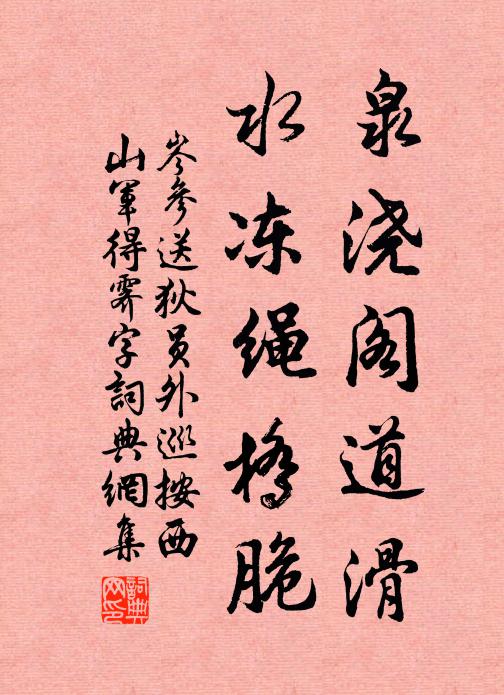 泉浇阁道滑
水冻绳桥脆
岑参送狄员外巡按西
山军得霁字詞典網集
詞典网印